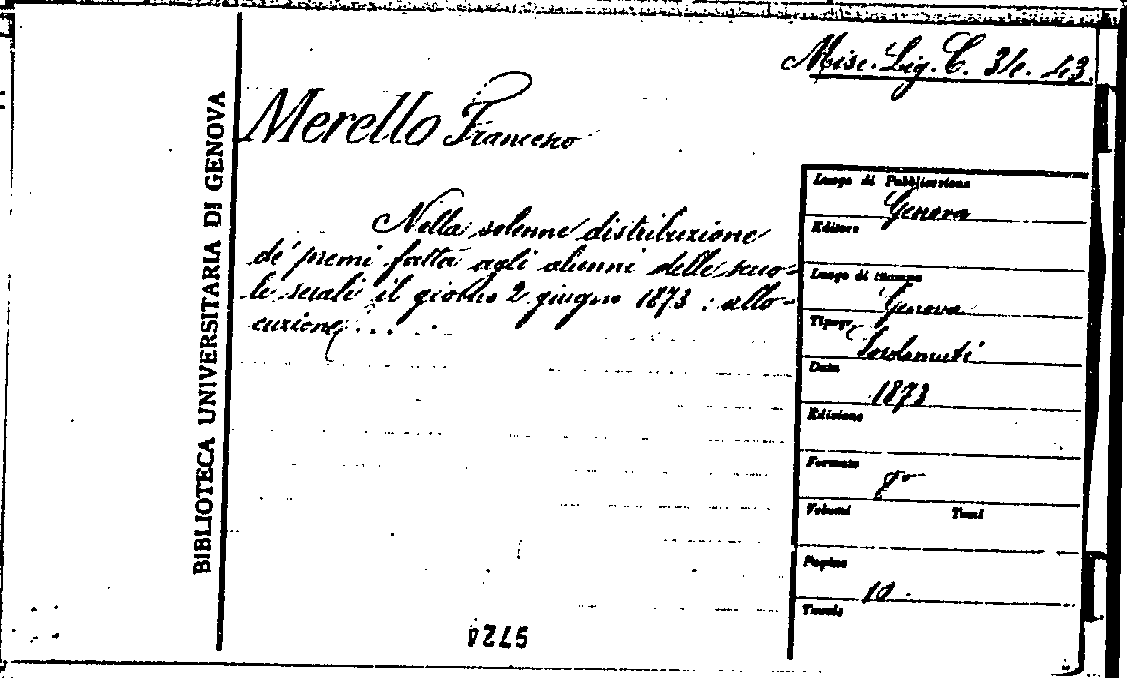 Misc. Lig. C. 31. 43.
Merello Francesco
Nella solenne distribuzione
de' premi fatta agli alunni delle scuo-
le serali il giorno 2 giugno 1873 : allo-
cuzione . . . .
BIBLIOTECA UNIVERSITARIA DI GENOVA
Luogo di Pubblicazione
Genova
Editore
Luogo di stampa
Genova
Tipogr.
Data
1873
Edizione
Formato
8°
Volumi Tomi
Pagine
10.
Tavole